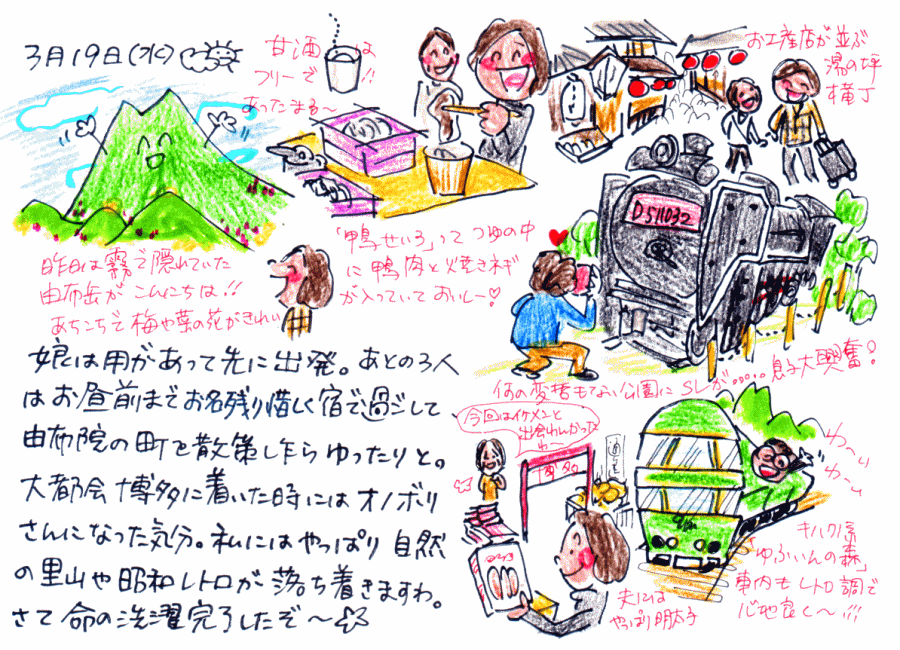 3月19日(水)
甘酒は
フリーで!!
あったまる〜
お土産店が並ぶ
湯の坪
横丁
D511032
「鴨せいろ」って つゆの中
に 鴨肉と焼きネギ
が入っていて おいしー♡
昨日は霧で隠れていた
由布岳が こんにちは!!
あちこちで 梅や菜の花がきれい
何の変哲もない公園に SLが.....息子大興奮!
娘は用があって先に出発。あとの3人
はお昼前までお名残り惜しく宿で過ごして
由布院の町を散策したら ゆったりと。
大都会 博多に着いた時には オノボリ
さんになった気分。私にはやっぱり 自然
の里山や昭和レトロが 落ち着きますわ。
さて 命の洗濯完了したぞ〜
今回はイケメンと
出会わんかった
わ〜
博多
めんたい
夫には
やっぱり明太子
わーい
わーい
キハ72系
「ゆふいんの森」
車内もレトロ調で
心地良く〜!!!